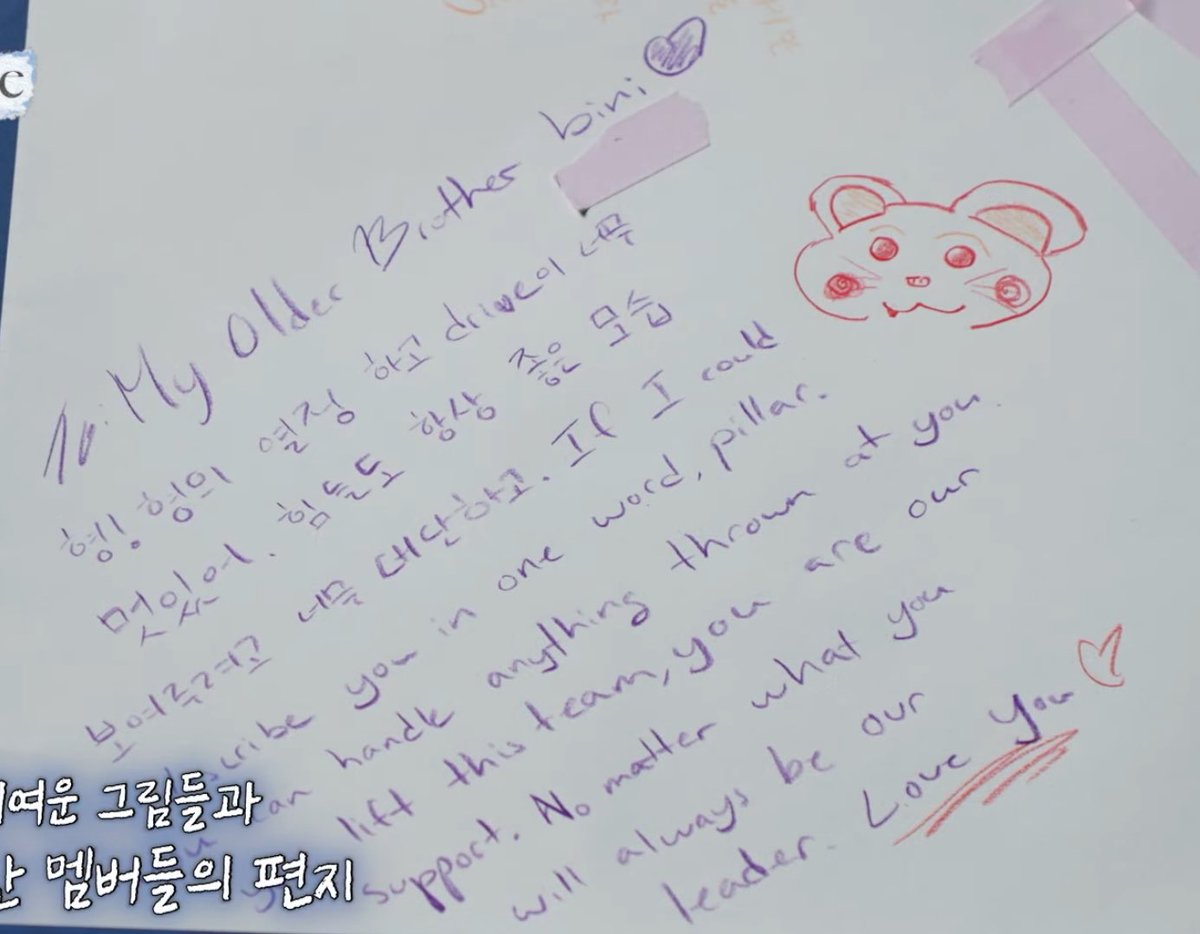 c
To. My Older Brother bini
형! 형의 열정 하고 drive이 너무
멋있어. 힘들도 항상 좋은 모습
보여주려고 너무 대단하고. If I could
describe you in one word, pillar.
can handle anything thrown at you.
lift this team, you are our
support. No matter what you
will always be our
leader. Love you
여운 그림들과
멤버들의 편지